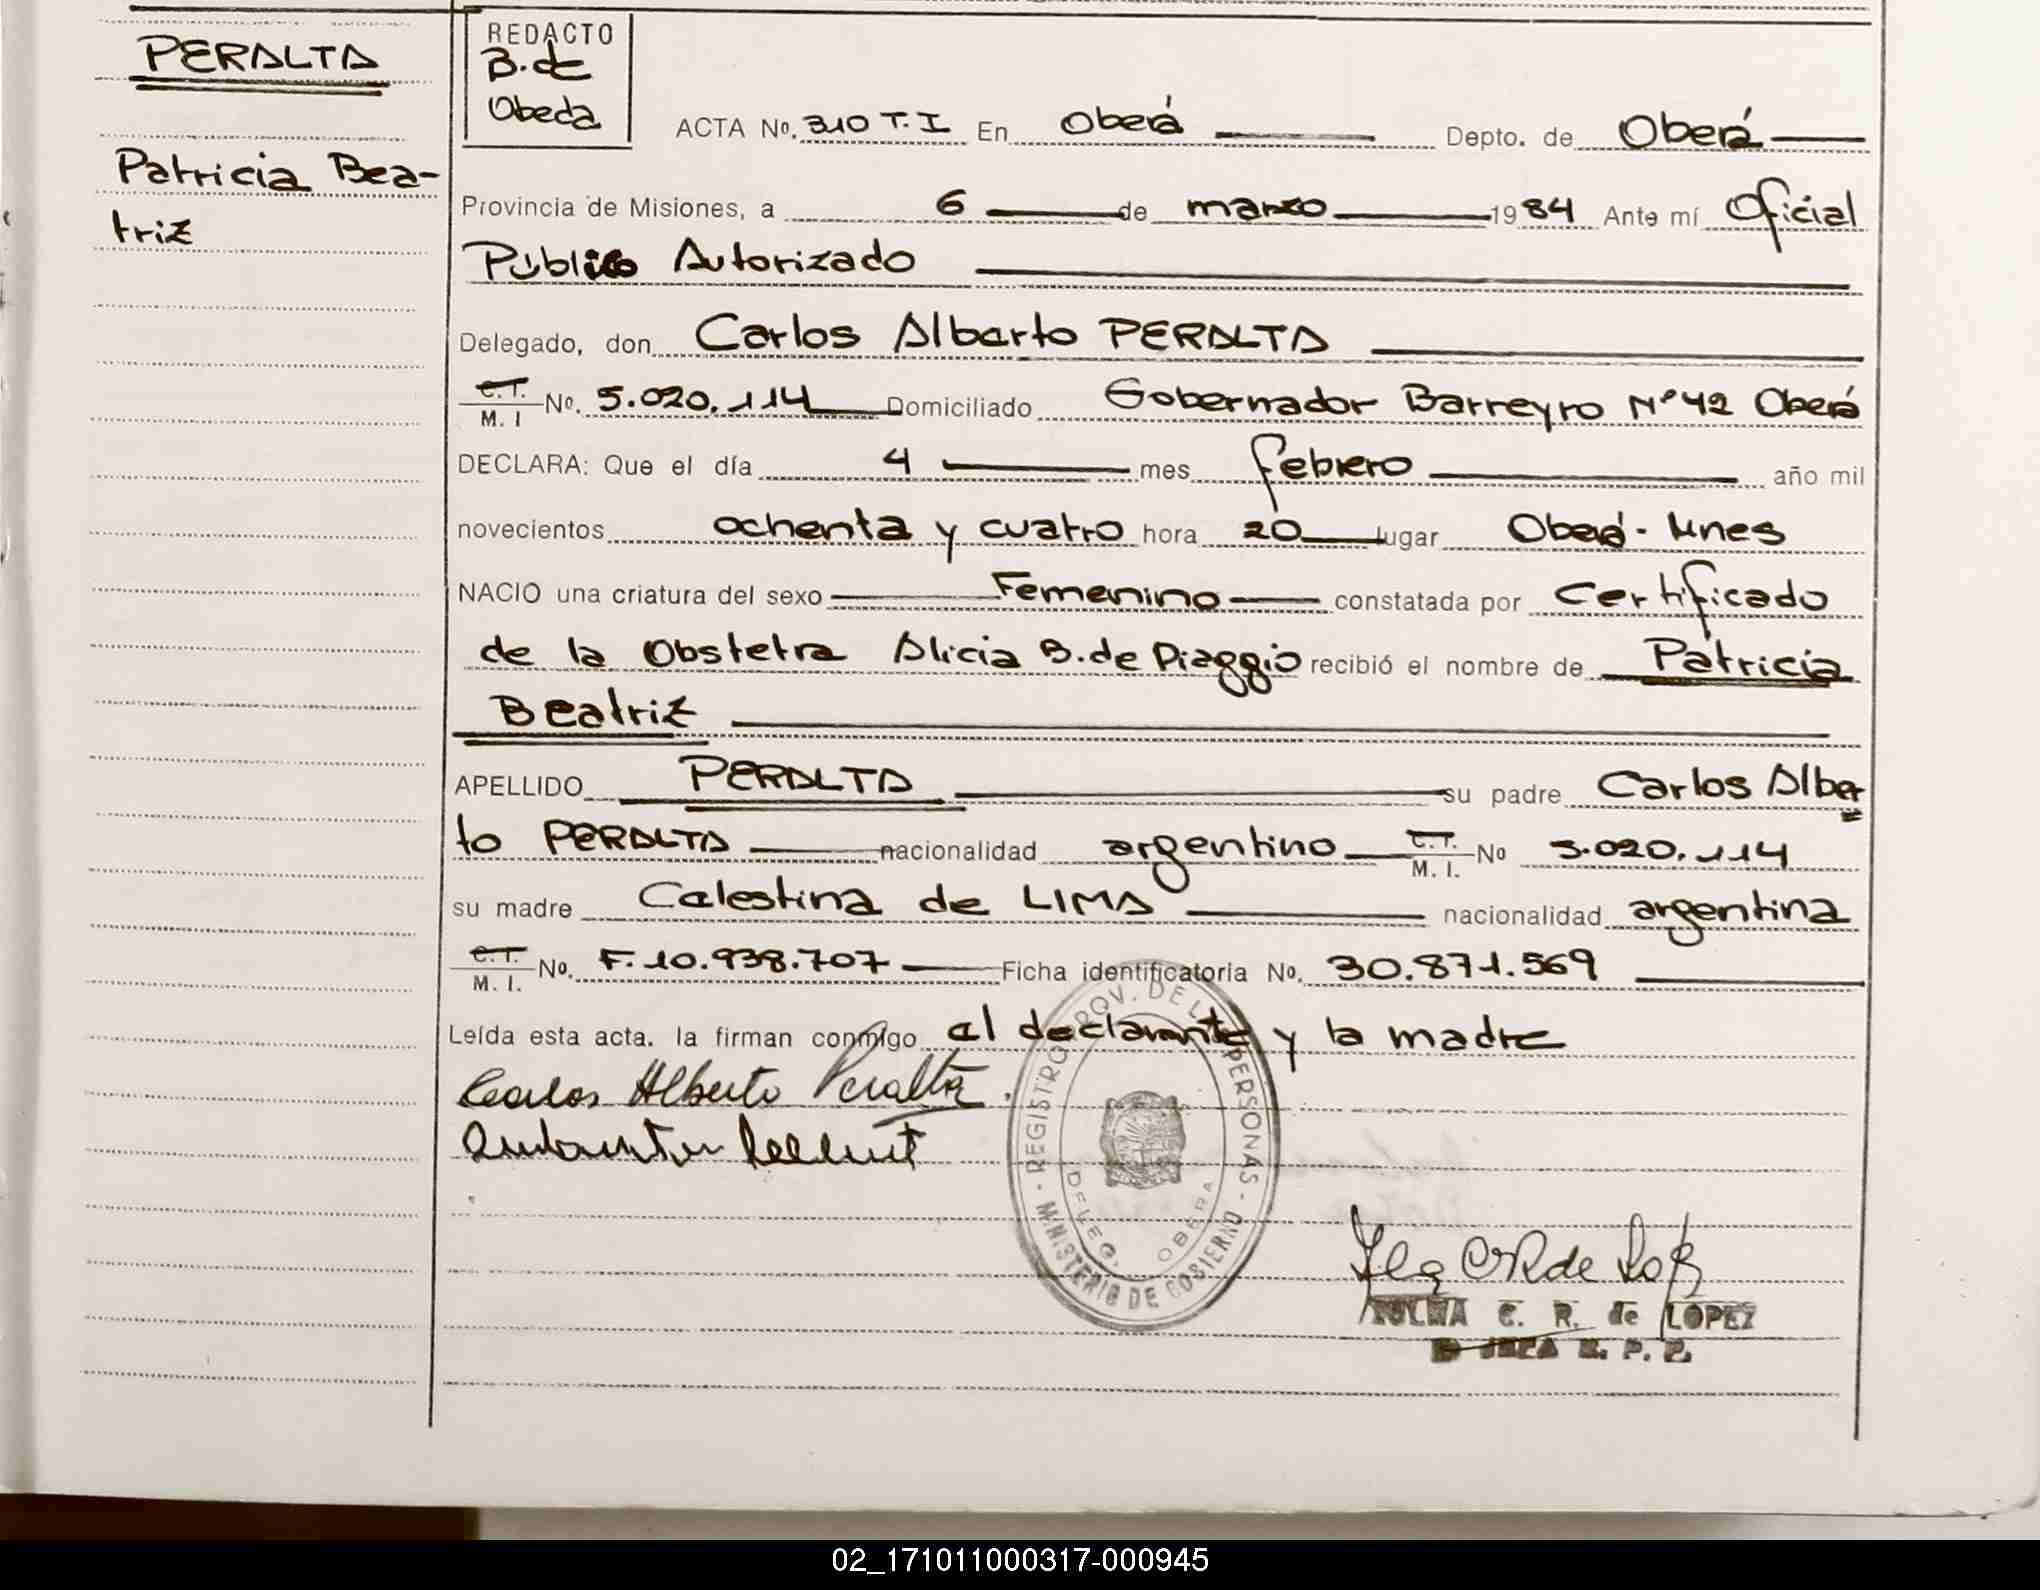 PERALTA
Patricia Bea-
triz
REDACTO
B. de
Obeda
ACTA No. 310 T. I En Oberá Depto. de Oberá
Provincia de Misiones, a 6 de marzo 1984 Ante mí Oficial
Público Autorizado
Delegado, don Carlos Alberto PERALTA
C.T. M. I No. 5.020.114 Domiciliado Gobernador Barreyro Nº 42 Oberá
DECLARA: Que el día 4 mes febrero año mil
novecientos ochenta y cuatro hora 20 lugar Oberá- Mnes
NACIO una criatura del sexo Femenino constatada por Certificado
de la Obstetra Alicia B. de Piaggio recibió el nombre de Patricia
Beatriz
APELLIDO PERALTA su padre Carlos Alber
to PERALTA nacionalidad argentino C.T. M. I. No 5.020.114
su madre Celestina de LIMA nacionalidad argentina
C.T. M. I. No. F. 10.938.707 Ficha identificatoria No. 30.871.569
Leída esta acta. la firman conmigo el declarante y la madre
Carlos Alberto Peralta
REGISTRO PROV. DE LAS PERSONAS - MINISTERIO DE GOBIERNO
DELEG. OBERA
C. R. de LOPEZ
R. P. P.
02_171011000317-000945